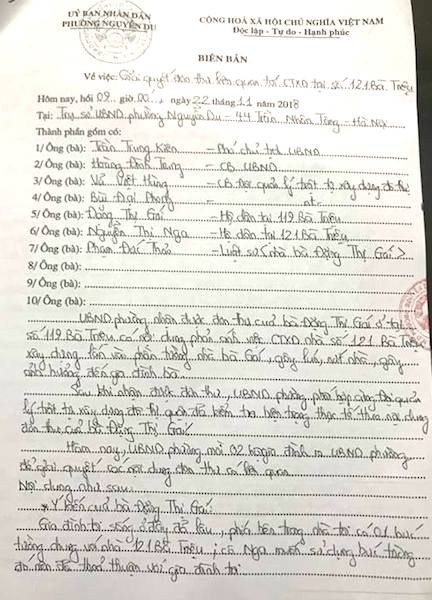 UỶ BAN NHÂN DÂN
PHƯỜNG NGUYỄN DU
CỘNG HOÀ XÃ HỘI CHỦ NGHĨA VIỆT NAM
Độc lập - Tự do - Hạnh phúc
BIÊN BẢN
Về việc: Giải quyết đơn thư liên quan tới CTXD tại số 121 Bà Triệu
Hôm nay, hồi 09 giờ 00, ngày 22 tháng 11 năm 2018
Tại: Trụ sở UBND phường Nguyễn Du - 44 Trần Nhân Tông - Hà Nội
Thành phần gồm có:
1/ Ông (bà): Trần Trung Kiên - Phó chủ tịch UBND
2/ Ông (bà): Hoàng Đình Trung - CB UBND
3/ Ông (bà): Vũ Việt Hùng - CB Đội quản lý trật tự xây dựng đô thị
4/ Ông (bà): Bùi Đại Phong - nt -
5/ Ông (bà): Đặng Thị Gái - Hộ dân tại 119 Bà Triệu
6/ Ông (bà): Nguyễn Thị Nga - Hộ dân tại 121 Bà Triệu
7/ Ông (bà): Phạm Đắc Thảo - Luật sư (nhà bà Đặng Thị Gái)
8/ Ông (bà):
9/ Ông (bà):
10/ Ông (bà):
UBND phường nhận được đơn thư của bà Đặng Thị Gái ở tại
số 119 Bà Triệu có nội dung phản ánh việc CTXD nhà số 121 Bà Triệu
xây dựng lấn vào phần tường nhà bà Gái, gây lún, nứt nhà, gây
ảnh hưởng đến gia đình bà.
Sau khi nhận được đơn thư, UBND phường phối hợp cùng Đội quản
lý trật tự xây dựng đô thị quận đã kiểm tra hiện trạng thực tế theo nội dung
đơn thư của bà Đặng Thị Gái
Hôm nay, UBND phường mời 02 hộ gia đình ra UBND phường
để giải quyết các nội dung đơn thư có liên quan.
Nội dung như sau:
Ý kiến của bà Đặng Thị Gái:
Gia đình tôi sống ở đây đã lâu, phía bên trong nhà tôi có 01 bức
tường chung với nhà 121 Bà Triệu; cô Nga muốn sử dụng bức tường
đó nên đã thoả thuận với gia đình tôi